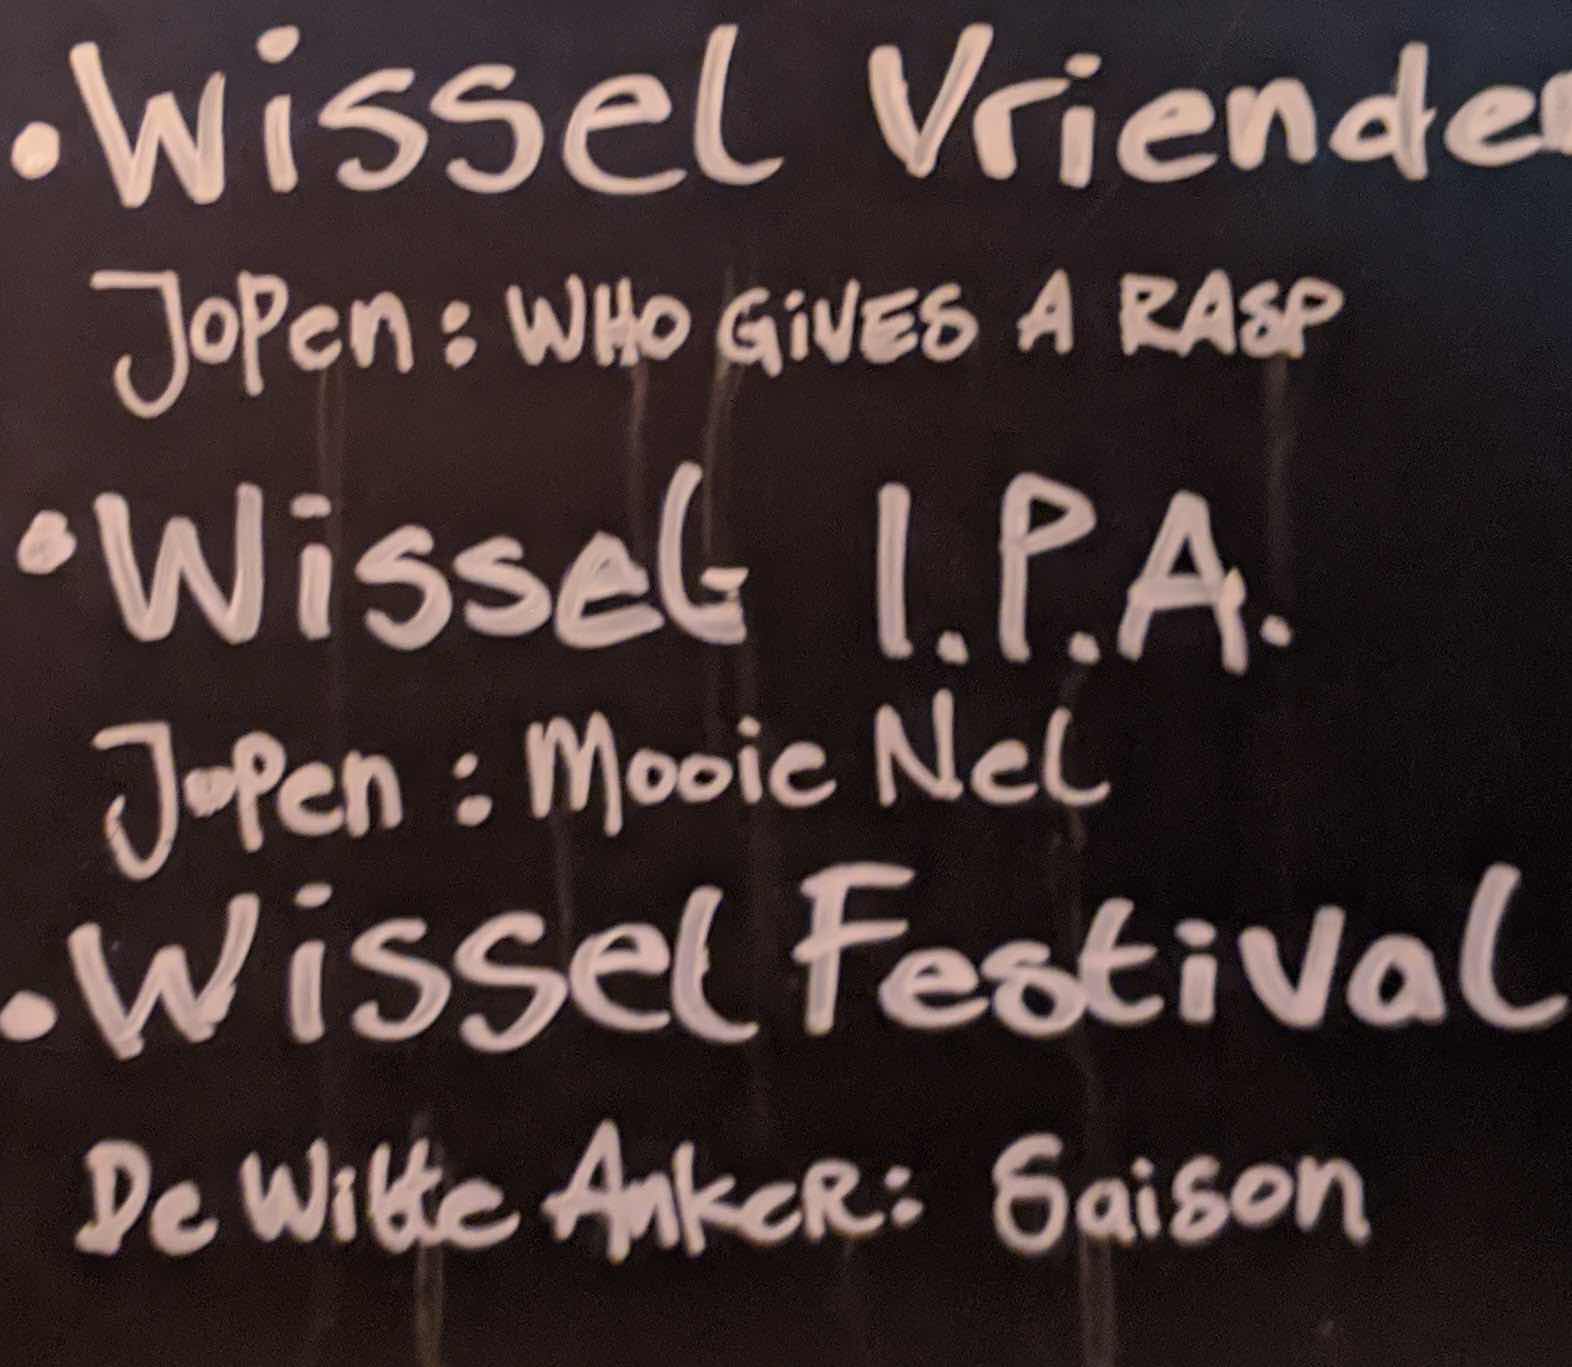 • Wissel Vrienden
Jopen : WHO GiVES A RASP
• Wissel I.P.A.
Jopen : Mooie Nel
• Wissel Festival
De Witte Anker: Saison